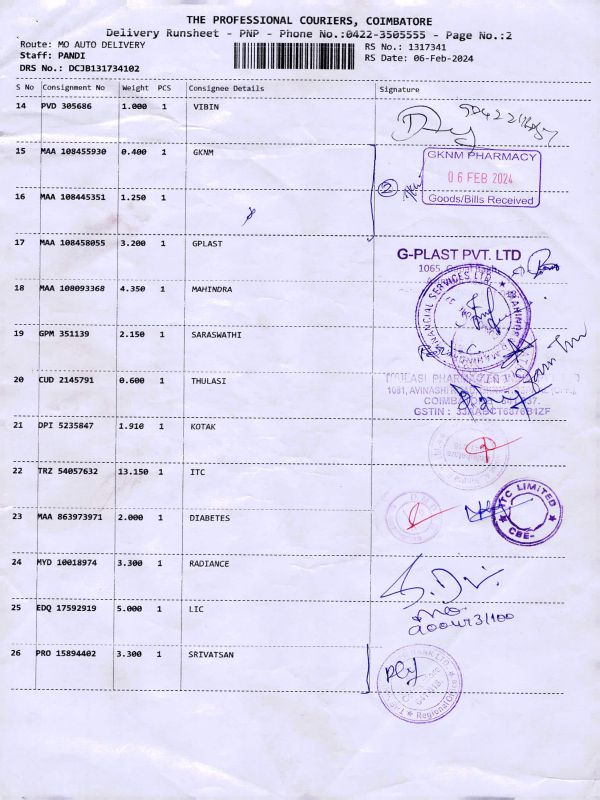 THE PROFESSIONAL COURIERS, COIMBATORE
Delivery Runsheet - PNP - Phone No.:0422-3505555 - Page No.:2
Route: MO AUTO DELIVERY
RS No.: 1317341
Staff: PANDI
RS Date: 06-Feb-2024
DRS No.: DCJB131734102
S No Consignment No Weight PCS Consignee Details Signature
14 PVD 305686 1.000 1 VIBIN
15 MAA 108455930 0.400 1 GKNM
GKNM PHARMACY
06 FEB 2024
Goods/Bills Received
2
16 MAA 108445351 1.250 1
17 MAA 108458055 3.200 1 GPLAST
G-PLAST PVT. LTD
18 MAA 108093368 4.350 1 MAHINDRA
FINANCIAL SERVICES LTD.
19 GPM 351139 2.150 1 SARASWATHI
20 CUD 2145791 0.600 1 THULASI
21 DPI 5235847 1.910 1 KOTAK
22 TRZ 54057632 13.150 1 ITC
ITC LIMITED
CBE-
23 MAA 863973971 2.000 1 DIABETES
24 MYD 10018974 3.300 1 RADIANCE
25 EDQ 17592919 5.000 1 LIC
26 PRO 15894402 3.300 1 SRIVATSAN